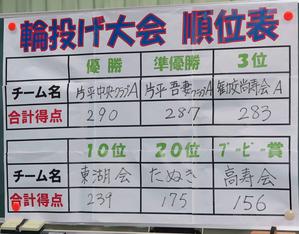 輪投げ大会 順位表
優勝 準優勝 3位
チーム名 片平中央クラブA 片平吾妻クラブA 尚寿会A
合計得点 290 287 283
10位 20位 ブービー賞
チーム名 東湖会 たぬき 高寿会
合計得点 239 175 156